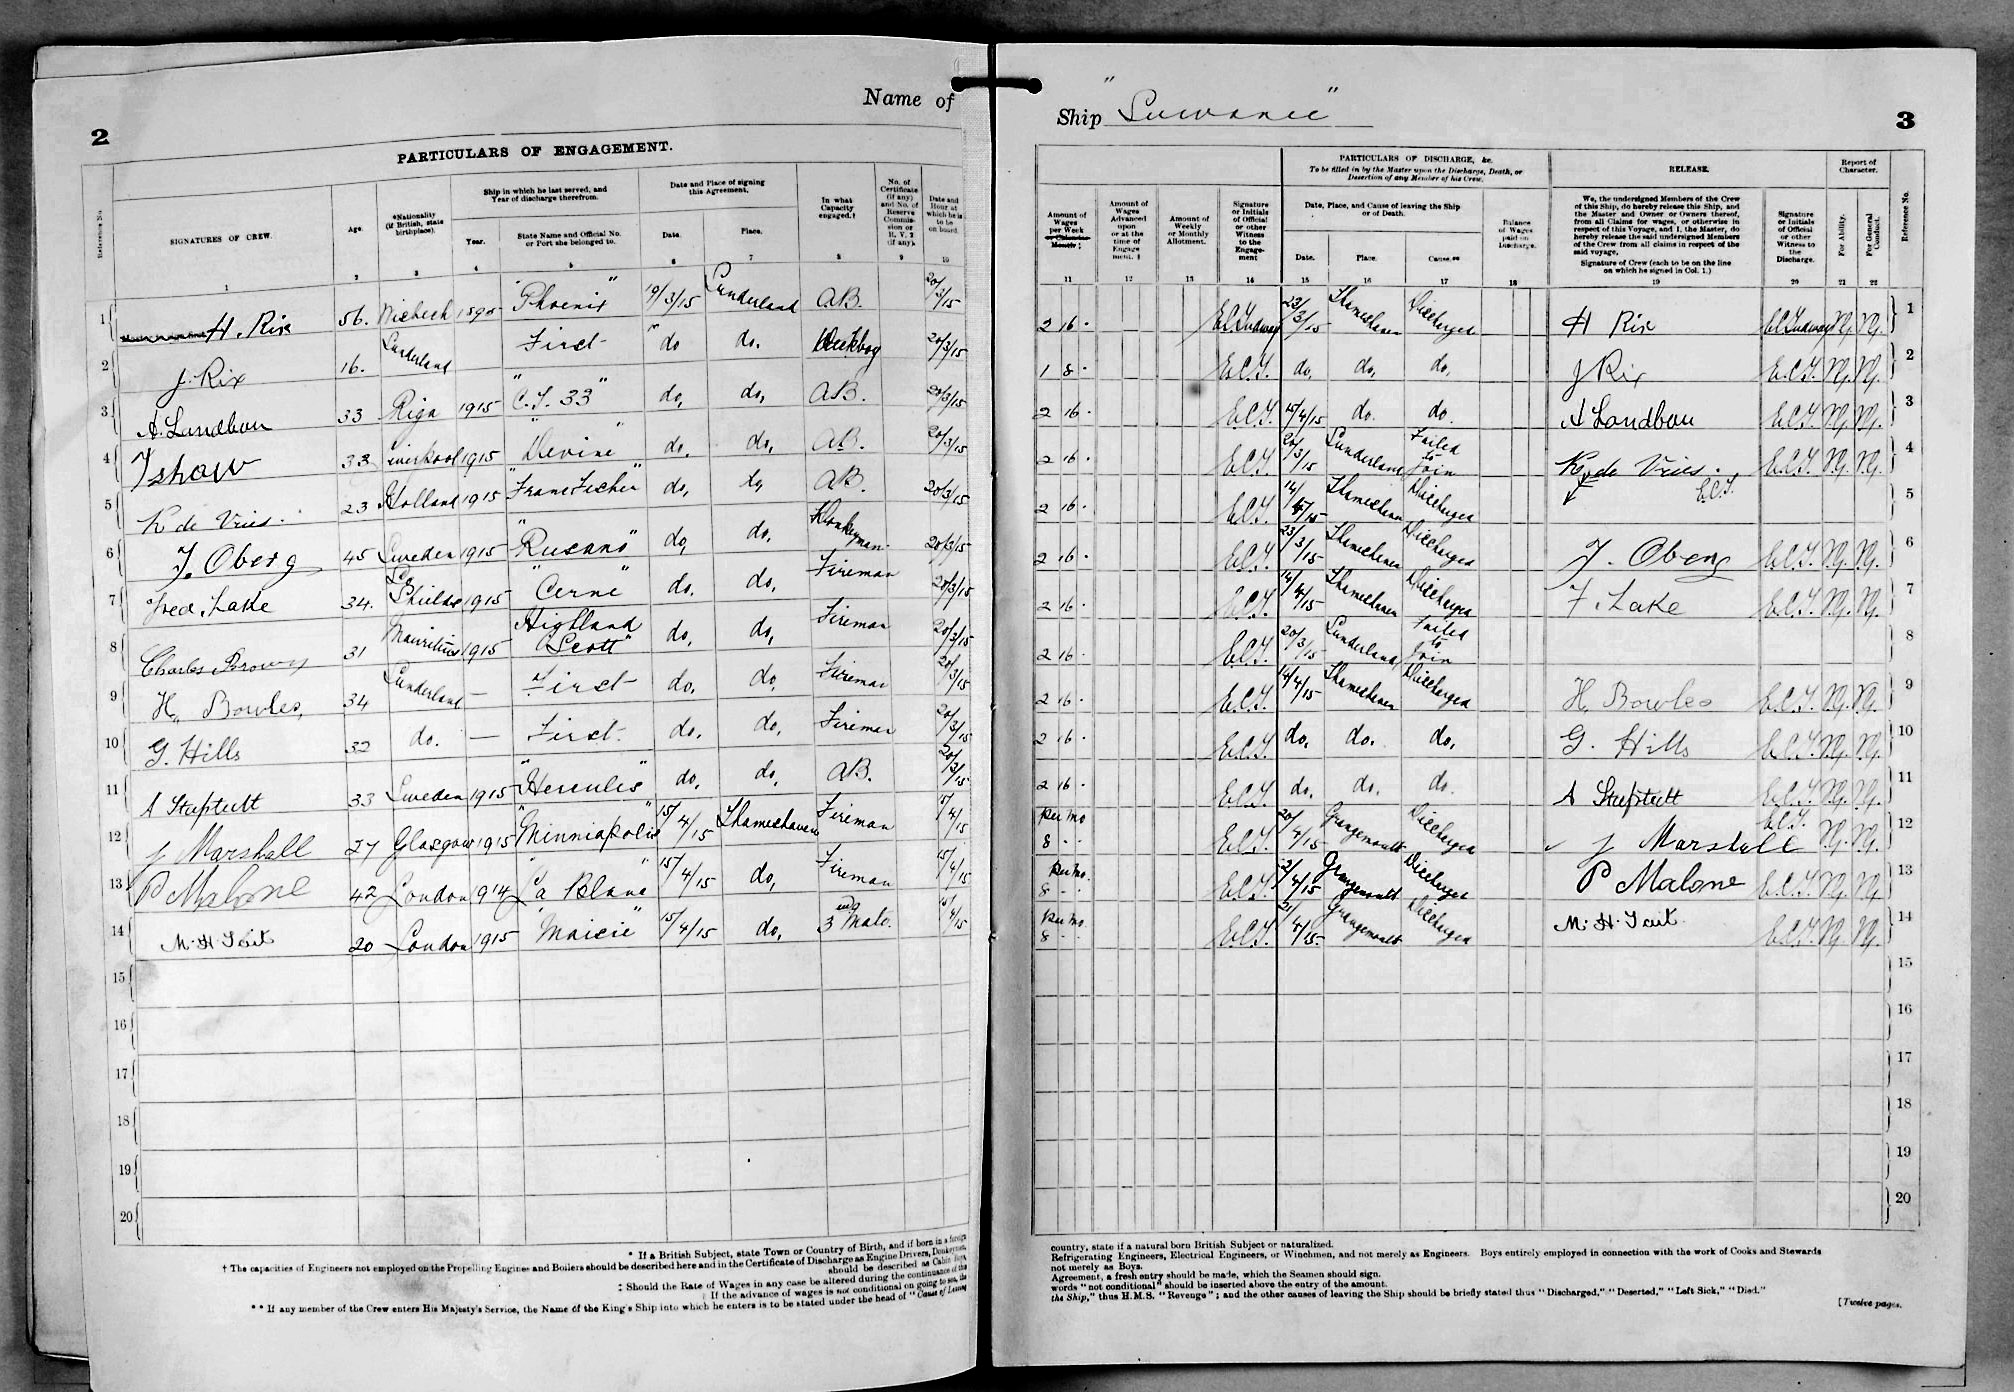 Name of
2
PARTICULARS OF ENGAGEMENT.
Reference No.
SIGNATURES OF CREW.
Age.
*Nationality (if British, state birthplace).
Ship in which he last served, and Year of discharge therefrom.
Year.
State Name and Official No. or Port she belonged to.
Date and Place of signing this Agreement.
Date.
Place.
In what Capacity engaged.†
No. of Certificate (if any) and No. of Reserve Commission or R. V. 2 (if any).
Date and Hour at which he is to be on board.
1 2 3 4 5 6 7 8 9 10
1 H. Rix 56. Wisbech 1895 "Phoenix" 19/3/15 Sunderland AB. 20/3/15
2 J. Rix 16. Sunderland First do do. Deckboy 20/3/15
3 A. Landbau 33 Riga 1915 "C.T. 33" do, do, AB. 20/3/15
4 T Shaw 33 Liverpool 1915 "Devine" do, do, AB. 20/3/15
5 K de Vries. 23 Holland 1915 do, AB. 20/3/15
6 J. Oberg 45 Sweden 1915 do, do, Donkeyman 20/3/15
7 Fred Lake 34. So Shields 1915 "Cerne" do, do, Fireman 20/3/15
8 Charles Brown 31 Mauritius 1915 "Highland Scott" do, do, Fireman 20/3/15
9 H. Bowles, 34 Sunderland — First do, do, Fireman 20/3/15
10 G. Hills 32 do. — First do, do, Fireman 20/3/15
11 A 33 Sweden 1915 "Hercules" do, do, AB. 20/3/15
12 J Marshall 27 Glasgow 1915 "Minniapolis" 15/4/15 Thameshaven Fireman 15/4/15
13 P Malone 42 London 1914 "La Blana" 15/4/15 do, Fireman 15/4/15
14 M. H. Tait 20 London 1915 "Maicie" 15/4/15 do, 3 Mate. 15/4/15
15
16
17
18
19
20
* If a British Subject, state Town or Country of Birth, and if born in a foreign
† The capacities of Engineers not employed on the Propelling Engines and Boilers should be described here and in the Certificate of Discharge as Engine Drivers, Donkeymen,
should be described as Cabin Boys,
‡ Should the Rate of Wages in any case be altered during the continuance of this
If the advance of wages is not conditional on going to sea, the
** If any member of the Crew enters His Majesty's Service, the Name of the King's Ship into which he enters is to be stated under the head of "Cause of Leaving
Ship "Suwanee"
3
Amount of Wages per Week or Calendar Month ‡
Amount of Wages Advanced upon or at the time of Engagement. ‡
Amount of Weekly or Monthly Allotment.
Signature or Initials of Official or other Witness to the Engagement
PARTICULARS OF DISCHARGE, &c.
To be filled in by the Master upon the Discharge, Death, or Desertion of any Member of his Crew.
Date, Place, and Cause of leaving the Ship or of Death.
Date.
Place.
Cause.**
Balance of Wages paid on Discharge.
RELEASE.
We, the undersigned Members of the Crew of this Ship, do hereby release this Ship, and the Master and Owner or Owners thereof, from all Claims for wages, or otherwise in respect of this Voyage, and I, the Master, do hereby release the said undersigned Members of the Crew from all claims in respect of the said voyage.
Signature of Crew (each to be on the line on which he signed in Col. 1.)
Signature or Initials of Official or other Witness to the Discharge.
Report of Character.
For Ability.
For General Conduct.
Reference No.
11 12 13 14 15 16 17 18 19 20 21 22
2 16 . 23/3/15 Thameshaven Discharged H Rix V.G. V.G. 1
1 8 . E.C.T. do, do, do, J Rix E.C.T. V.G. V.G. 2
2 16 . E.C.T. 15/4/15 do. do. A Landbau E.C.T. V.G. V.G. 3
2 16 . E.C.T. 20/3/15 Sunderland Failed to Join K. de Vries. E.C.T. V.G. V.G. 4
2 16 . E.C.T. Thameshaven Discharged E.C.T. 5
2 16 . E.C.T. 23/3/15 Thameshaven Discharged J. Oberg E.C.T. V.G. V.G. 6
2 16 . E.C.T. 14/4/15 Thameshaven Discharged F. Lake E.C.T. V.G. V.G. 7
2 16 . E.C.T. 20/3/15 Sunderland, Failed to Join 8
2 16 . E.C.T. 14/4/15 Thameshaven Discharged H. Bowles E.C.T. V.G. V.G. 9
2 16 . E.C.T. do, do. do, G. Hills E.C.T. V.G. V.G. 10
2 16 . E.C.T. do, do, do. A E.C.T. V.G. V.G. 11
Per Mo 8 . . E.C.T. Grangemouth Discharged J Marshall E.C.T. V.G. V.G. 12
Per Mo. 8 - - E.C.T. Grangemouth Discharged P Malone E.C.T. V.G. V.G. 13
Per Mo. 8 - - E.C.T. 21/4/15 Grangemouth Discharged M. H. Tait E.C.T. V.G. V.G. 14
15
16
17
18
19
20
country, state if a natural born British Subject or naturalized.
Refrigerating Engineers, Electrical Engineers, or Winchmen, and not merely as Engineers. Boys entirely employed in connection with the work of Cooks and Stewards
not merely as Boys.
Agreement, a fresh entry should be made, which the Seamen should sign.
words "not conditional" should be inserted above the entry of the amount.
the Ship," thus H.M.S. "Revenge"; and the other causes of leaving the Ship should be briefly stated thus "Discharged," "Deserted," "Left Sick," "Died."
[Twelve pages.